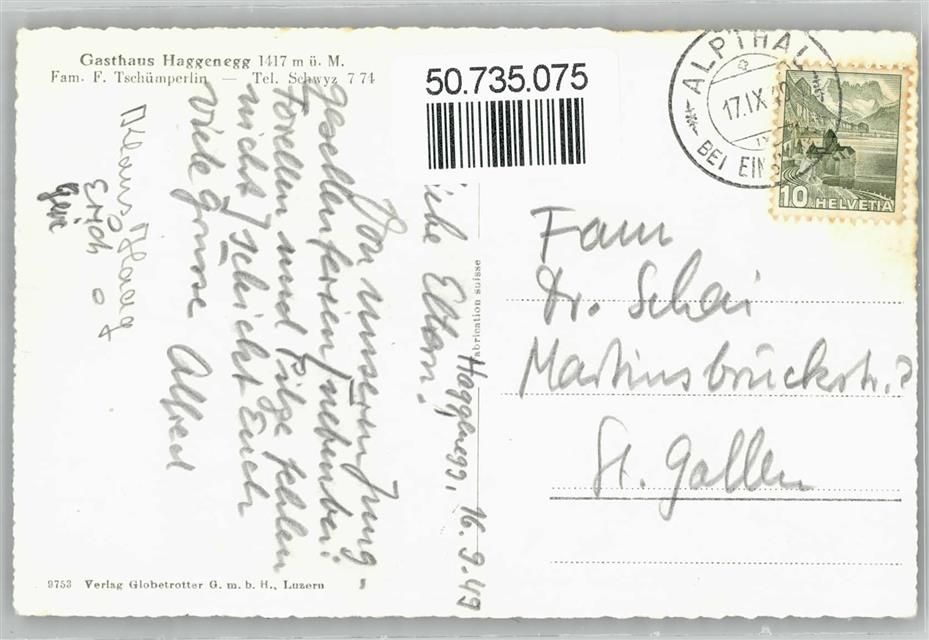 Gasthaus Haggenegg 1417 m ü. M.
Fam. F. Tschümperlin — Tel. Schwyz 7 74
50.735.075
ALPTHAL
17.IX
BEI EIN
10 HELVETIA
Haggenegg, 16.9.49
Eltern!
Von unseren Jung-
gesellenferien
Forellen und Pilze fehlen
nicht! Schickt Euch
Viele Grüsse Alfred
Erich
Fam
Dr. Schai
Martinsbruckstr. ?
St. Gallen
Fabrication suisse
9753 Verlag Globetrotter G. m. b. H., Luzern